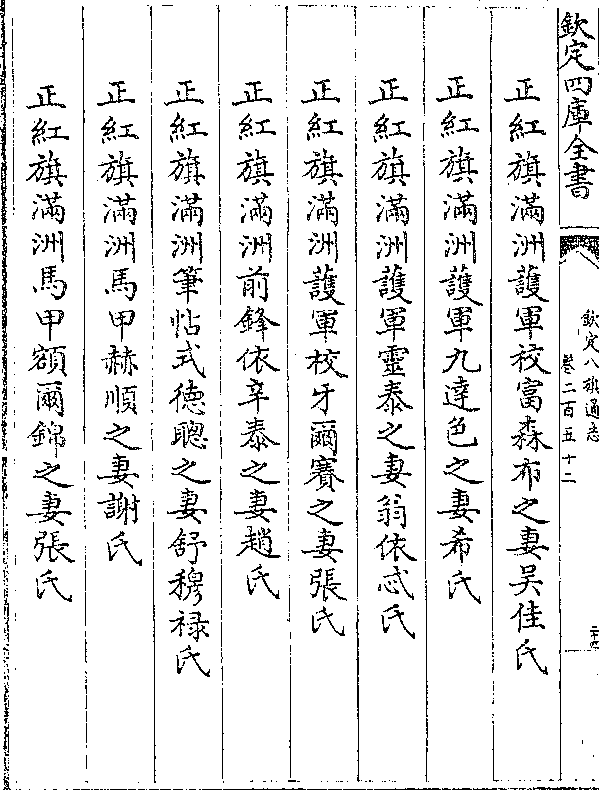 欽定四庫全書
欽定八旗通志
卷二百五十二
二十四
正紅旗滿洲護軍校富森布之妻吴佳氏
正紅旗滿洲護軍九達色之妻希氏
正紅旗滿洲護軍靈泰之妻翁依忒氏
正紅旗滿洲護軍校牙爾賽之妻張氏
正紅旗滿洲前鋒依辛泰之妻趙氏
正紅旗滿洲筆帖式德聰之妻舒穆禄氏
正紅旗滿洲馬甲赫順之妻謝氏
正紅旗滿洲馬甲額爾錦之妻張氏